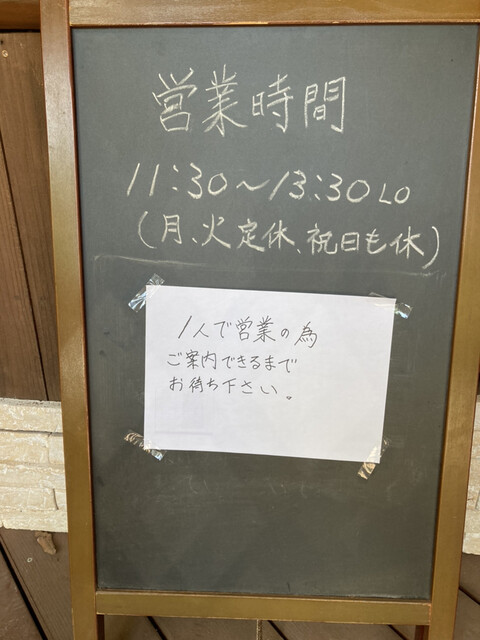 営業時間
11:30〜13:30 LO
(月、火定休、祝日も休)
1人で営業の為
ご案内できるまで
お待ち下さい。